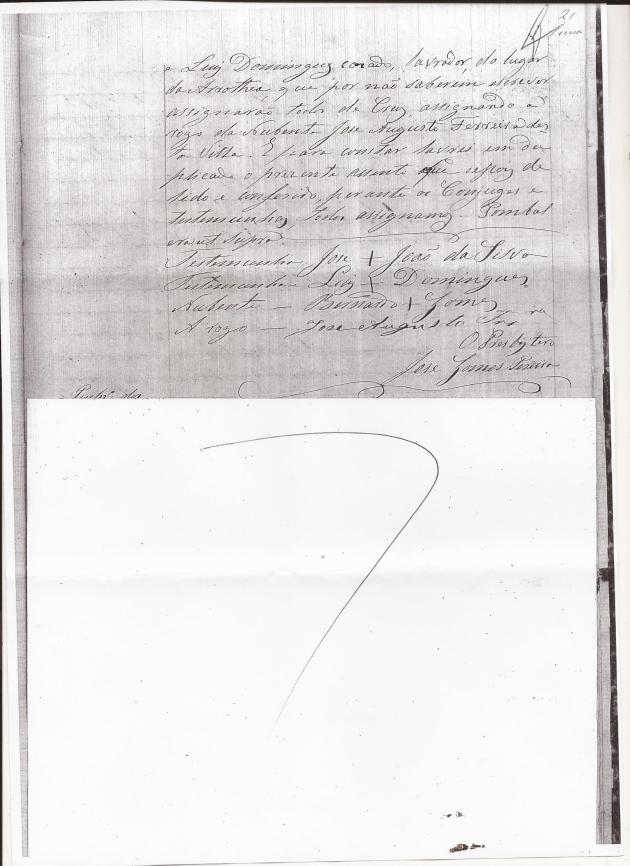 21
e Luiz Domingues casado, lavrador do lugar
da Arrothea que por não saberem escrever
assignarão todos de Cruz, assignando a
rogo da Nubente José Augusto Ferreira des
ta Villa. E para constar lavrei em du
plicado o prezente assento que depois de
lido e conferido perante os Conjuges e
testemunhas, todos assignamos. Pombal
era ut supra
Testemunha José + João da Silva
Testemunha Luiz + Domingues
Nubente — Bernardo + Gomes
A rogo — José Augusto Frra
O Presbytero
José Gomes Pereira